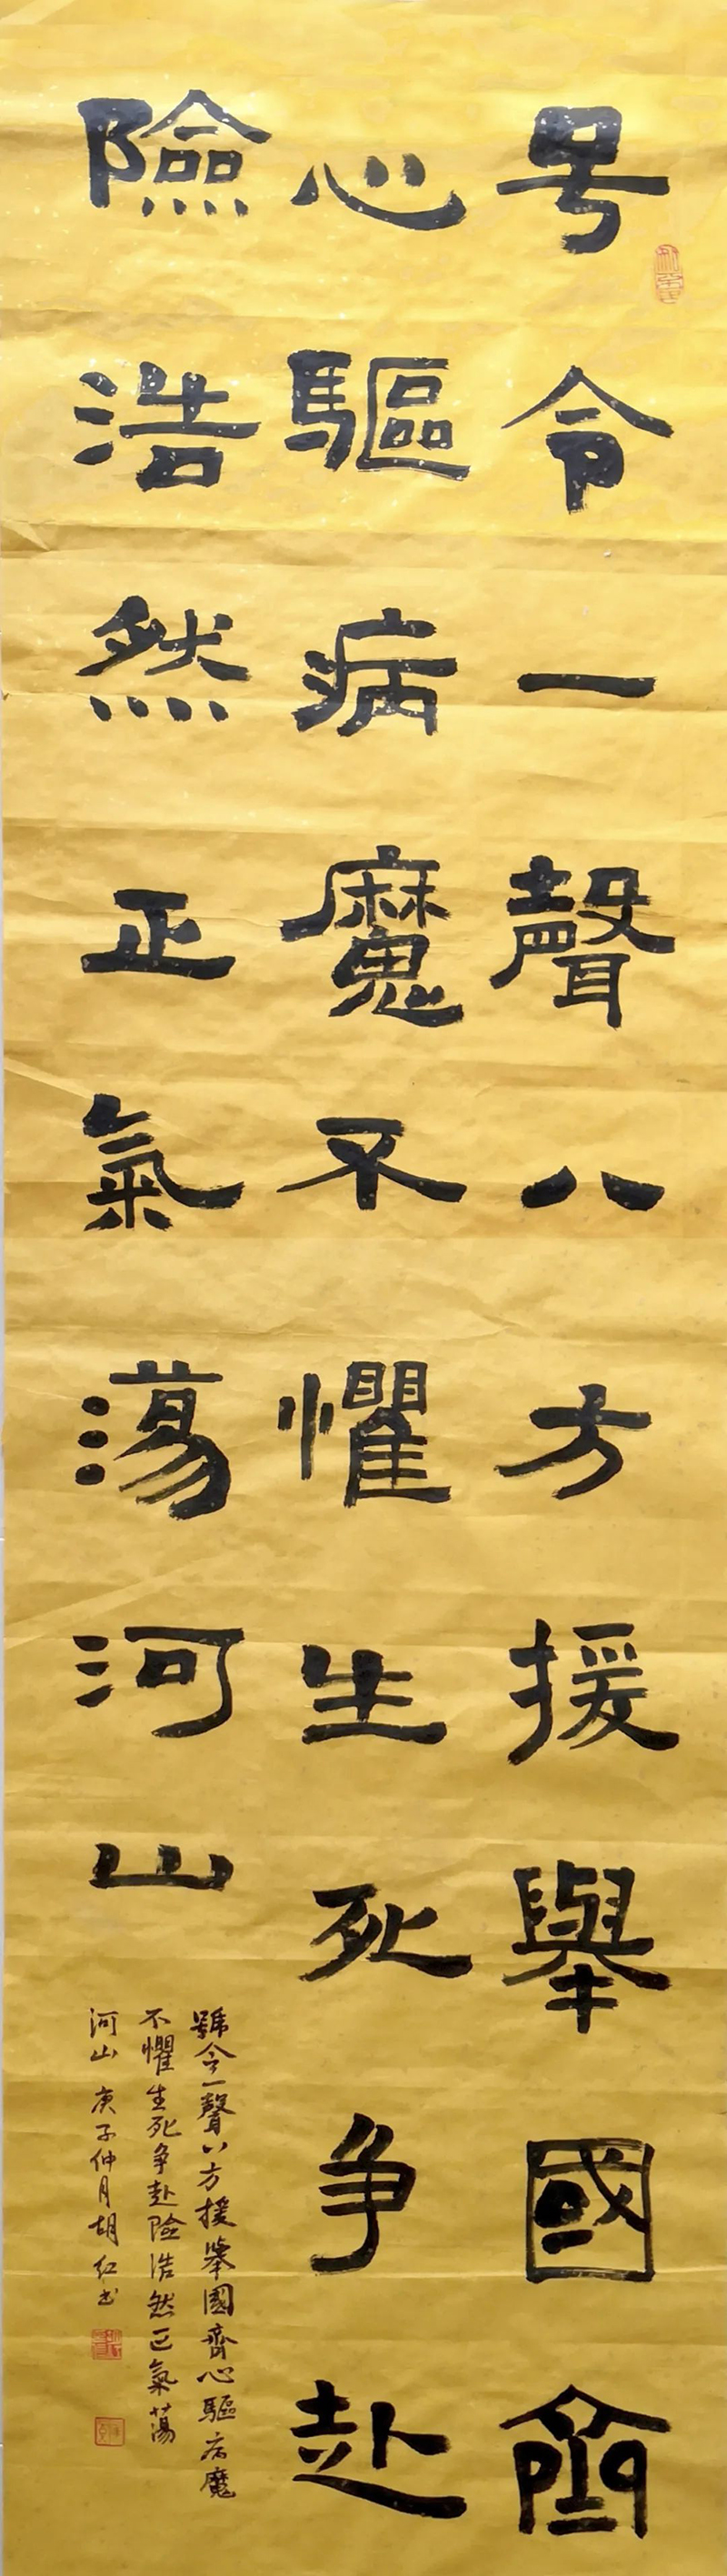 号令一聲八方援舉國齊
心驅病魔不懼生死争赴
險浩然正氣蕩河山
號令一聲八方援舉國齊心驅病魔
不懼生死争赴險浩然正氣蕩
河山 庚子仲月胡红书